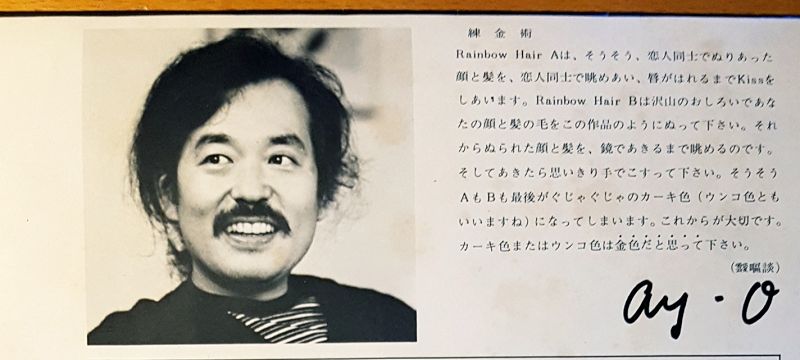 練金術
Rainbow Hair Aは、そうそう、恋人同士でぬりあった
顔と髪を、恋人同士で眺めあい、唇がはれるまでKissを
しあいます。Rainbow Hair Bは沢山のおしろいであな
たの顔と髪の毛をこの作品のようにぬって下さい。それ
からぬられた顔と髪を、鏡であきるまで眺めるのです。
そしてあきたら思いきり手でこすって下さい。そうそう
AもBも最後がぐじゃぐじゃのカーキ色（ウンコ色とも
いいますね）になってしまいます。これからが大切です。
カーキ色またはウンコ色は金色だと思って下さい。
（靉嘔談）
ay-O